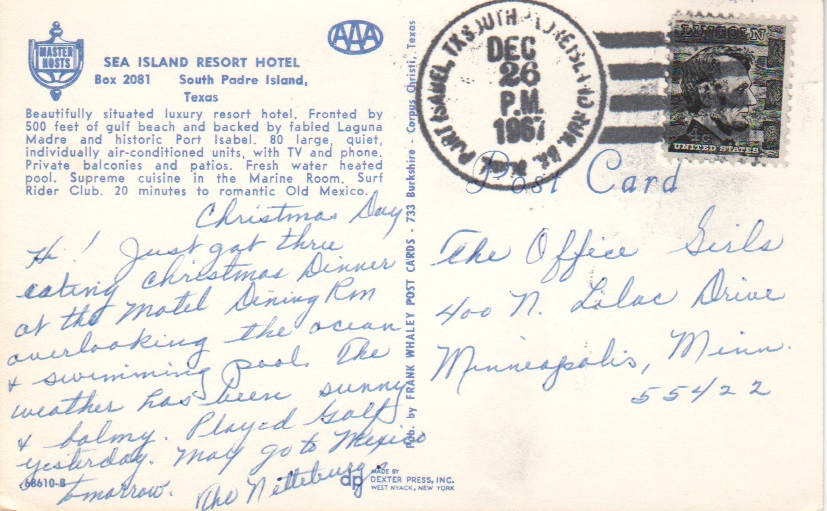 MASTER HOSTS
AAA
SEA ISLAND RESORT HOTEL
Box 2081 South Padre Island,
Texas
Beautifully situated luxury resort hotel. Fronted by
500 feet of gulf beach and backed by fabled Laguna
Madre and historic Port Isabel. 80 large, quiet,
individually air-conditioned units, with TV and phone.
Private balconies and patios. Fresh water heated
pool. Supreme cuisine in the Marine Room, Surf
Rider Club. 20 minutes to romantic Old Mexico.
Christmas Day
Hi! Just got thru
eating Christmas Dinner
at the Motel Dining Rm
overlooking the ocean
& swimming pool. The
weather has been sunny
& balmy. Played Golf
yesterday. May go to Mexico
tomorrow. The Netteburgs
68610-B
Pub. by FRANK WHALEY POST CARDS - 733 Burkshire - Corpus Christi, Texas
dp MADE BY
DEXTER PRESS, INC.
WEST NYACK, NEW YORK
PORT ISABEL, TX SOUTH
DEC
26
P.M.
1967
LINCOLN
4c
UNITED STATES
Post Card
The Office Girls
400 N. Lilac Drive
Minneapolis, Minn.
55422